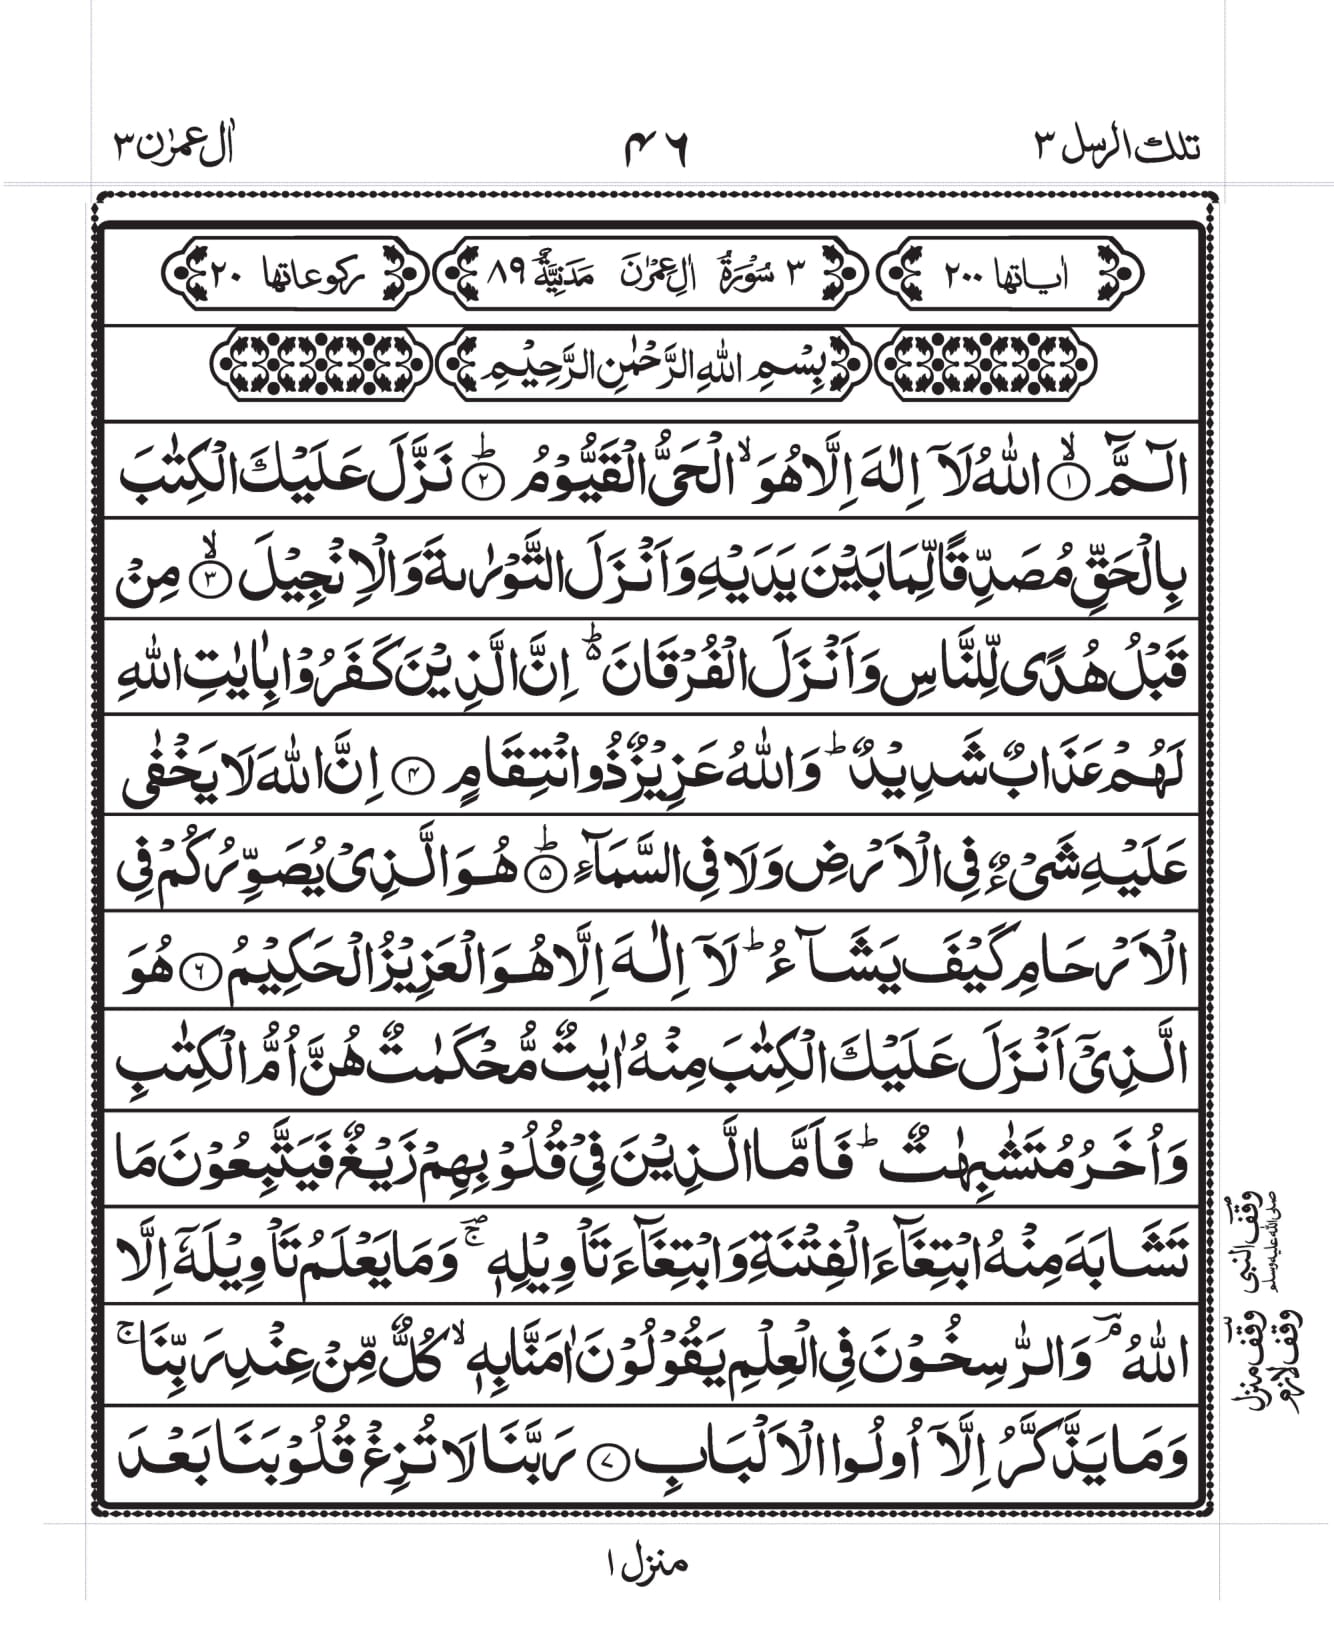 تلك الرسل ٣
۴۶
اٰل عمرٰن ٣
اٰیاتها ۲۰۰
٣ سُوْرَةُ اٰلِ عِمْرٰنَ مَدَنِيَّةٌ ٨٩
رکوعاتها ۲۰
بِسْمِ اللهِ الرَّحْمٰنِ الرَّحِيْمِ
الٓـمَّٓ ۙ﴿۱﴾ اللهُ لَاۤ اِلٰهَ اِلَّا هُوَ ۙ الْحَىُّ الْقَيُّوْمُ ؕ﴿۲﴾ نَزَّلَ عَلَيْكَ الْكِتٰبَ
بِالْحَقِّ مُصَدِّقًا لِّمَا بَيْنَ يَدَيْهِ وَاَنْزَلَ التَّوْرٰىةَ وَالْاِنْجِيْلَ ۙ﴿۳﴾ مِنْ
قَبْلُ هُدًى لِّلنَّاسِ وَاَنْزَلَ الْفُرْقَانَ ؕ۵ اِنَّ الَّذِيْنَ كَفَرُوْا بِاٰيٰتِ اللهِ
لَهُمْ عَذَابٌ شَدِيْدٌ ؕ وَاللهُ عَزِيْزٌ ذُو انْتِقَامٍ ﴿۴﴾ اِنَّ اللهَ لَا يَخْفٰى
عَلَيْهِ شَىْءٌ فِى الْاَرْضِ وَلَا فِى السَّمَآءِ ؕ﴿۵﴾ هُوَ الَّذِىْ يُصَوِّرُكُمْ فِى
الْاَرْحَامِ كَيْفَ يَشَآءُ ؕ لَاۤ اِلٰهَ اِلَّا هُوَ الْعَزِيْزُ الْحَكِيْمُ ﴿۶﴾ هُوَ
الَّذِىْۤ اَنْزَلَ عَلَيْكَ الْكِتٰبَ مِنْهُ اٰيٰتٌ مُّحْكَمٰتٌ هُنَّ اُمُّ الْكِتٰبِ
وَاُخَرُ مُتَشٰبِهٰتٌ ؕ فَاَمَّا الَّذِيْنَ فِىْ قُلُوْبِهِمْ زَيْغٌ فَيَتَّبِعُوْنَ مَا
تَشَابَهَ مِنْهُ ابْتِغَآءَ الْفِتْنَةِ وَابْتِغَآءَ تَاْوِيْلِهٖ ۚۖ وَمَا يَعْلَمُ تَاْوِيْلَهٗۤ اِلَّا
اللهُ ۘ وَالرّٰسِخُوْنَ فِى الْعِلْمِ يَقُوْلُوْنَ اٰمَنَّا بِهٖ ۙ كُلٌّ مِّنْ عِنْدِ رَبِّنَا ۚ
وَمَا يَذَّكَّرُ اِلَّاۤ اُولُوا الْاَلْبَابِ ﴿۷﴾ رَبَّنَا لَا تُزِغْ قُلُوْبَنَا بَعْدَ
وقف النبی صلی اللہ علیہ وسلم
وقف منزل
وقف لازم
منزل ۱